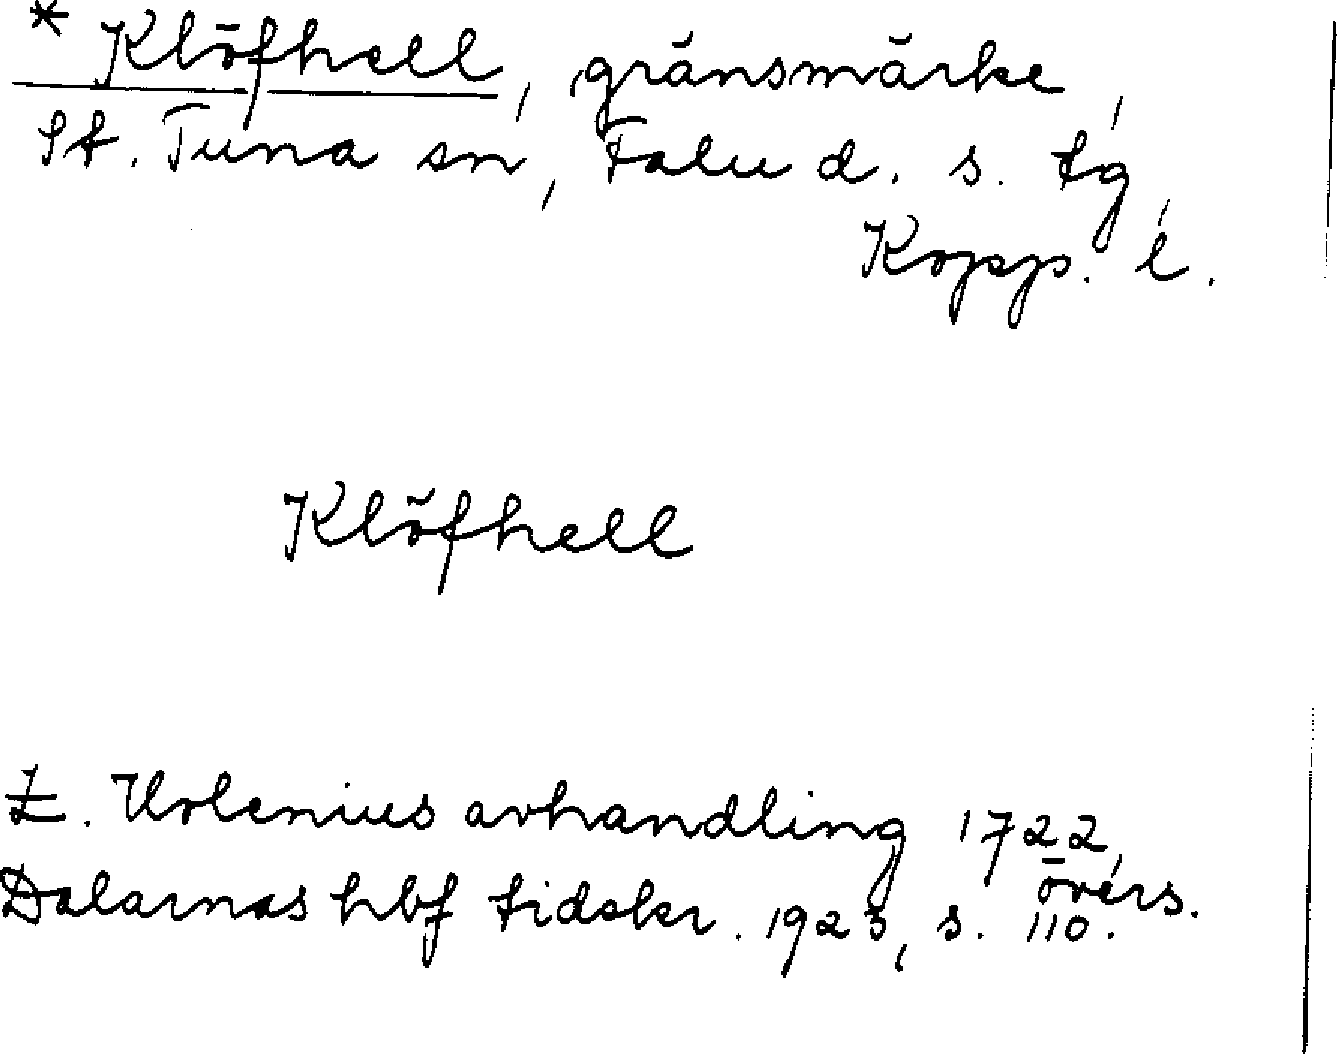 * Klöfhell, gränsmärke,
St. Tuna sn, Falu d. s. tg,
Kopp. l.
Klöfhell
E. Urlenius avhandling 1722,
övers.
Dalarnas hbf tidskr. 1923, s. 110.